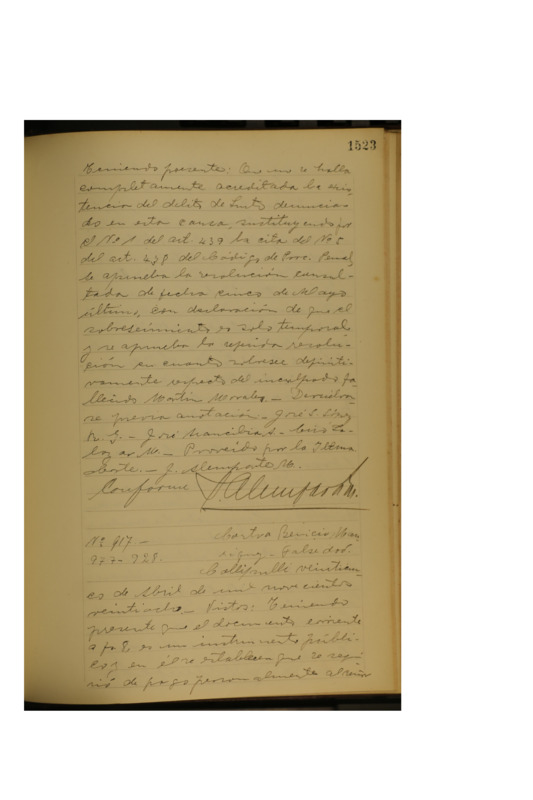 1523
Teniendo presente: Que no se halla
completamente acreditada la exis-
tencia del delito de hurto denuncia-
do en esta causa, sustituyendo por
el No 1 del art. 439 la cita del No 5
del art. 438 del Código de Proc. Penal,
se aprueba la resolución consul-
tada de fecha cinco de Mayo
último, con declaración de que el
sobreseimiento es solo temporal
y se aprueba la referida resolu-
ción en cuanto sobresee definiti-
vamente respecto del inculpado fa-
llecido Martin Morales — Devuélva
se previa anotación — José
— José — Luis
M. — Proveído por la Iltma
Corte. — J. Alemparte M.
Conforme Alemparte M.
No 917. — Contra Benicio
977-928. — Falsedad.
Collipulli veinticin-
co de Abril de mil novecientos
veintiocho — Vistos: Teniendo
presente que el documento corriente
a fs. es un instrumento públi-
co y en él se establece que se requi
rió de pago personalmente al señor